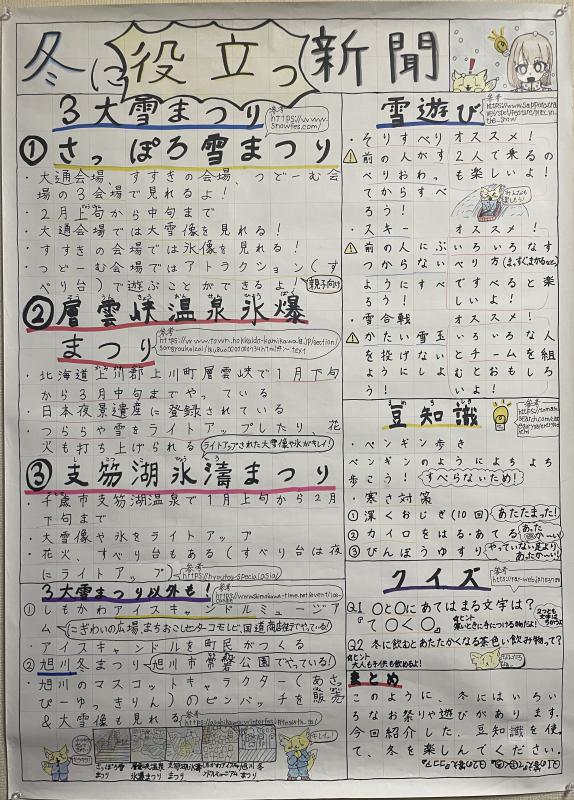 冬に役立つ新聞
3大雪まつり
参考
https://www.snowfes.com/
①さっぽろ雪まつり
・大通会場、すすきの会場 つどーむ会
場の3会場で見れるよ！
・2月上旬から中旬まで
・大通会場では大雪像を見れる！
・すすきの会場では氷像を見れる！
・つどーむ会場ではアトラクション(す
べり台)で遊ぶことができるよ！
親子向け
②層雲峡温泉氷爆
まつり
参考
・北海道上川郡上川町層雲峡で1月下旬
から3月中旬までやっている
・日本夜景遺産に登録されている
・つららや雪をライトアップしたり、花
火も打ち上げられる
ライトアップされた大雪像や氷がキレイ！
③支笏湖氷濤まつり
・千歳市支笏湖温泉で1月上旬から2月
下旬まで
・大雪像や氷をライトアップ
・花火、すべり台もある(すべり台は夜
にライトアップ)
参考
3大雪まつり以外も！
参考
①しもかわアイスキャンドルミュージア
ム
にぎわいの広場、まちおこしセンターコモレビ、国道商店街でやっている！
・アイスキャンドルを町民がつくる
②旭川冬まつり
旭川市常磐公園でやっている！
・旭川のマスコットキャラクター(あさっ
ぴーゆっきりん)のピンバッチを販売
&大雪像も見れる
さっぽろ雪まつり
層雲峡温泉氷爆まつり
支笏湖氷濤まつり
しもかわアイスキャンドルミュージアム
旭川冬まつり
雪遊び
参考
・そりすべり オススメ！
前の人がすべりおわってからすべろう！
2人で乗るのも楽しいよ！
みんなも楽しもう！
・スキー オススメ！
前の人にぶつからないようにすべろう！
いろいろなすべり方(まっすぐ、まがるなど。)ですべると楽しいよ！
・雪合戦 オススメ！
かたい雪玉を投げないようにしよう！
いろいろな人とチームを組むとおもしろいよ！
豆知識
参考
・ペンギン歩き
ペンギンのようによちよち
歩こう！
すべらないため！
・寒さ対策
①深くおじぎ(10回)
あたたまった！
②カイロをはる・あてる
あったか～い！
③びんぼうゆすり
やっていない足よりあったか～い！
クイズ
Q1 ○と○にあてはまる文字は？
2つとも文字はちがうよ
『て○く○』
☆ヒント
寒いときに手につける物だよ！
Q2 冬に飲むとあたたかくなる茶色い飲み物って？
☆ヒント
大人も子供も飲めるよ！
まとめ
このように、冬にはいろい
ろなお祭りや遊びがあります。
今回紹介した、豆知識を使っ
て、冬を楽しんでください。